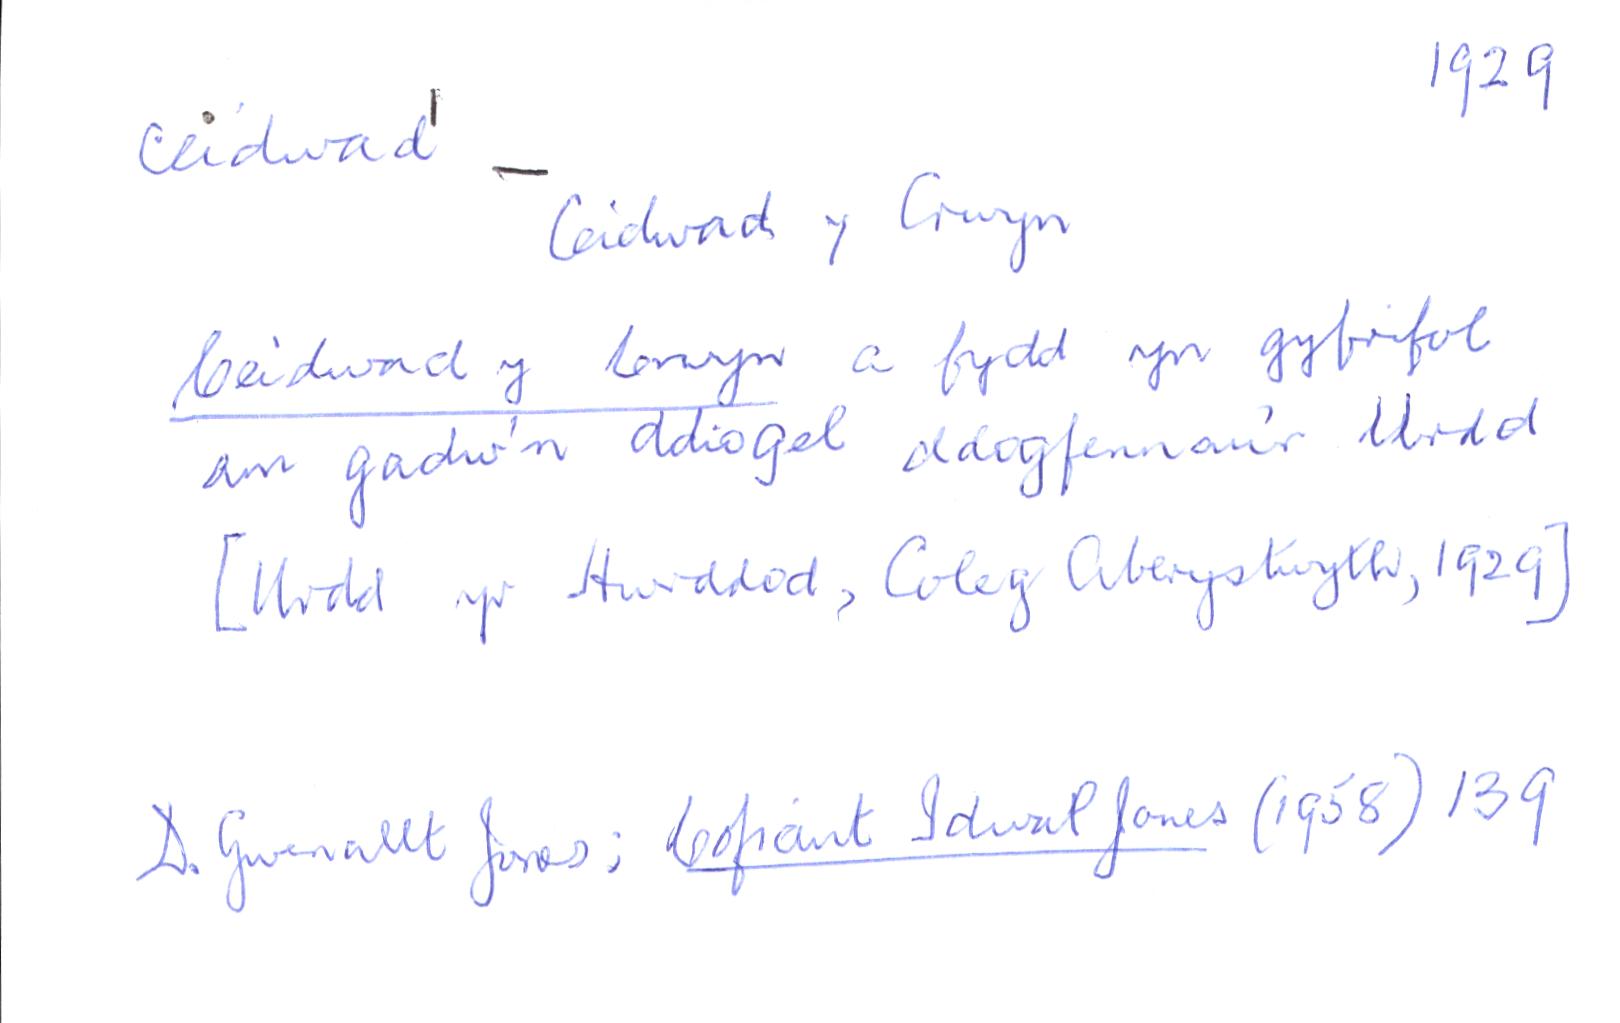 1929
ceidwad¹ —
Ceidwad y Crwyn
Ceidwad y Crwyn a fydd yn gyfrifol
am gadw'n ddiogel ddogfennau'r Urdd
[Urdd yr Hwrddod, Coleg Aberystwyth, 1929]
D. Gwenallt Jones; Cofiant Idwal Jones (1958) 139